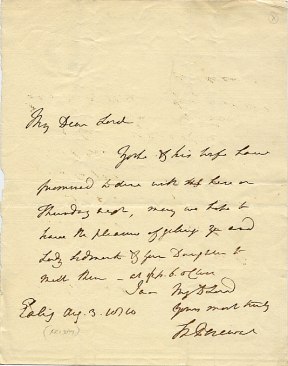 My Dear Lord
Yorke & his wife have
promised to dine with us here on
Thursday next, may we hope to
have the pleasure of getting you and
Lady Sidmouth & your Daughters to
meet them – at ½ p. 6 o'Clock
I am My D Lord
Yours most truly
Ealing Aug. 3. 1810